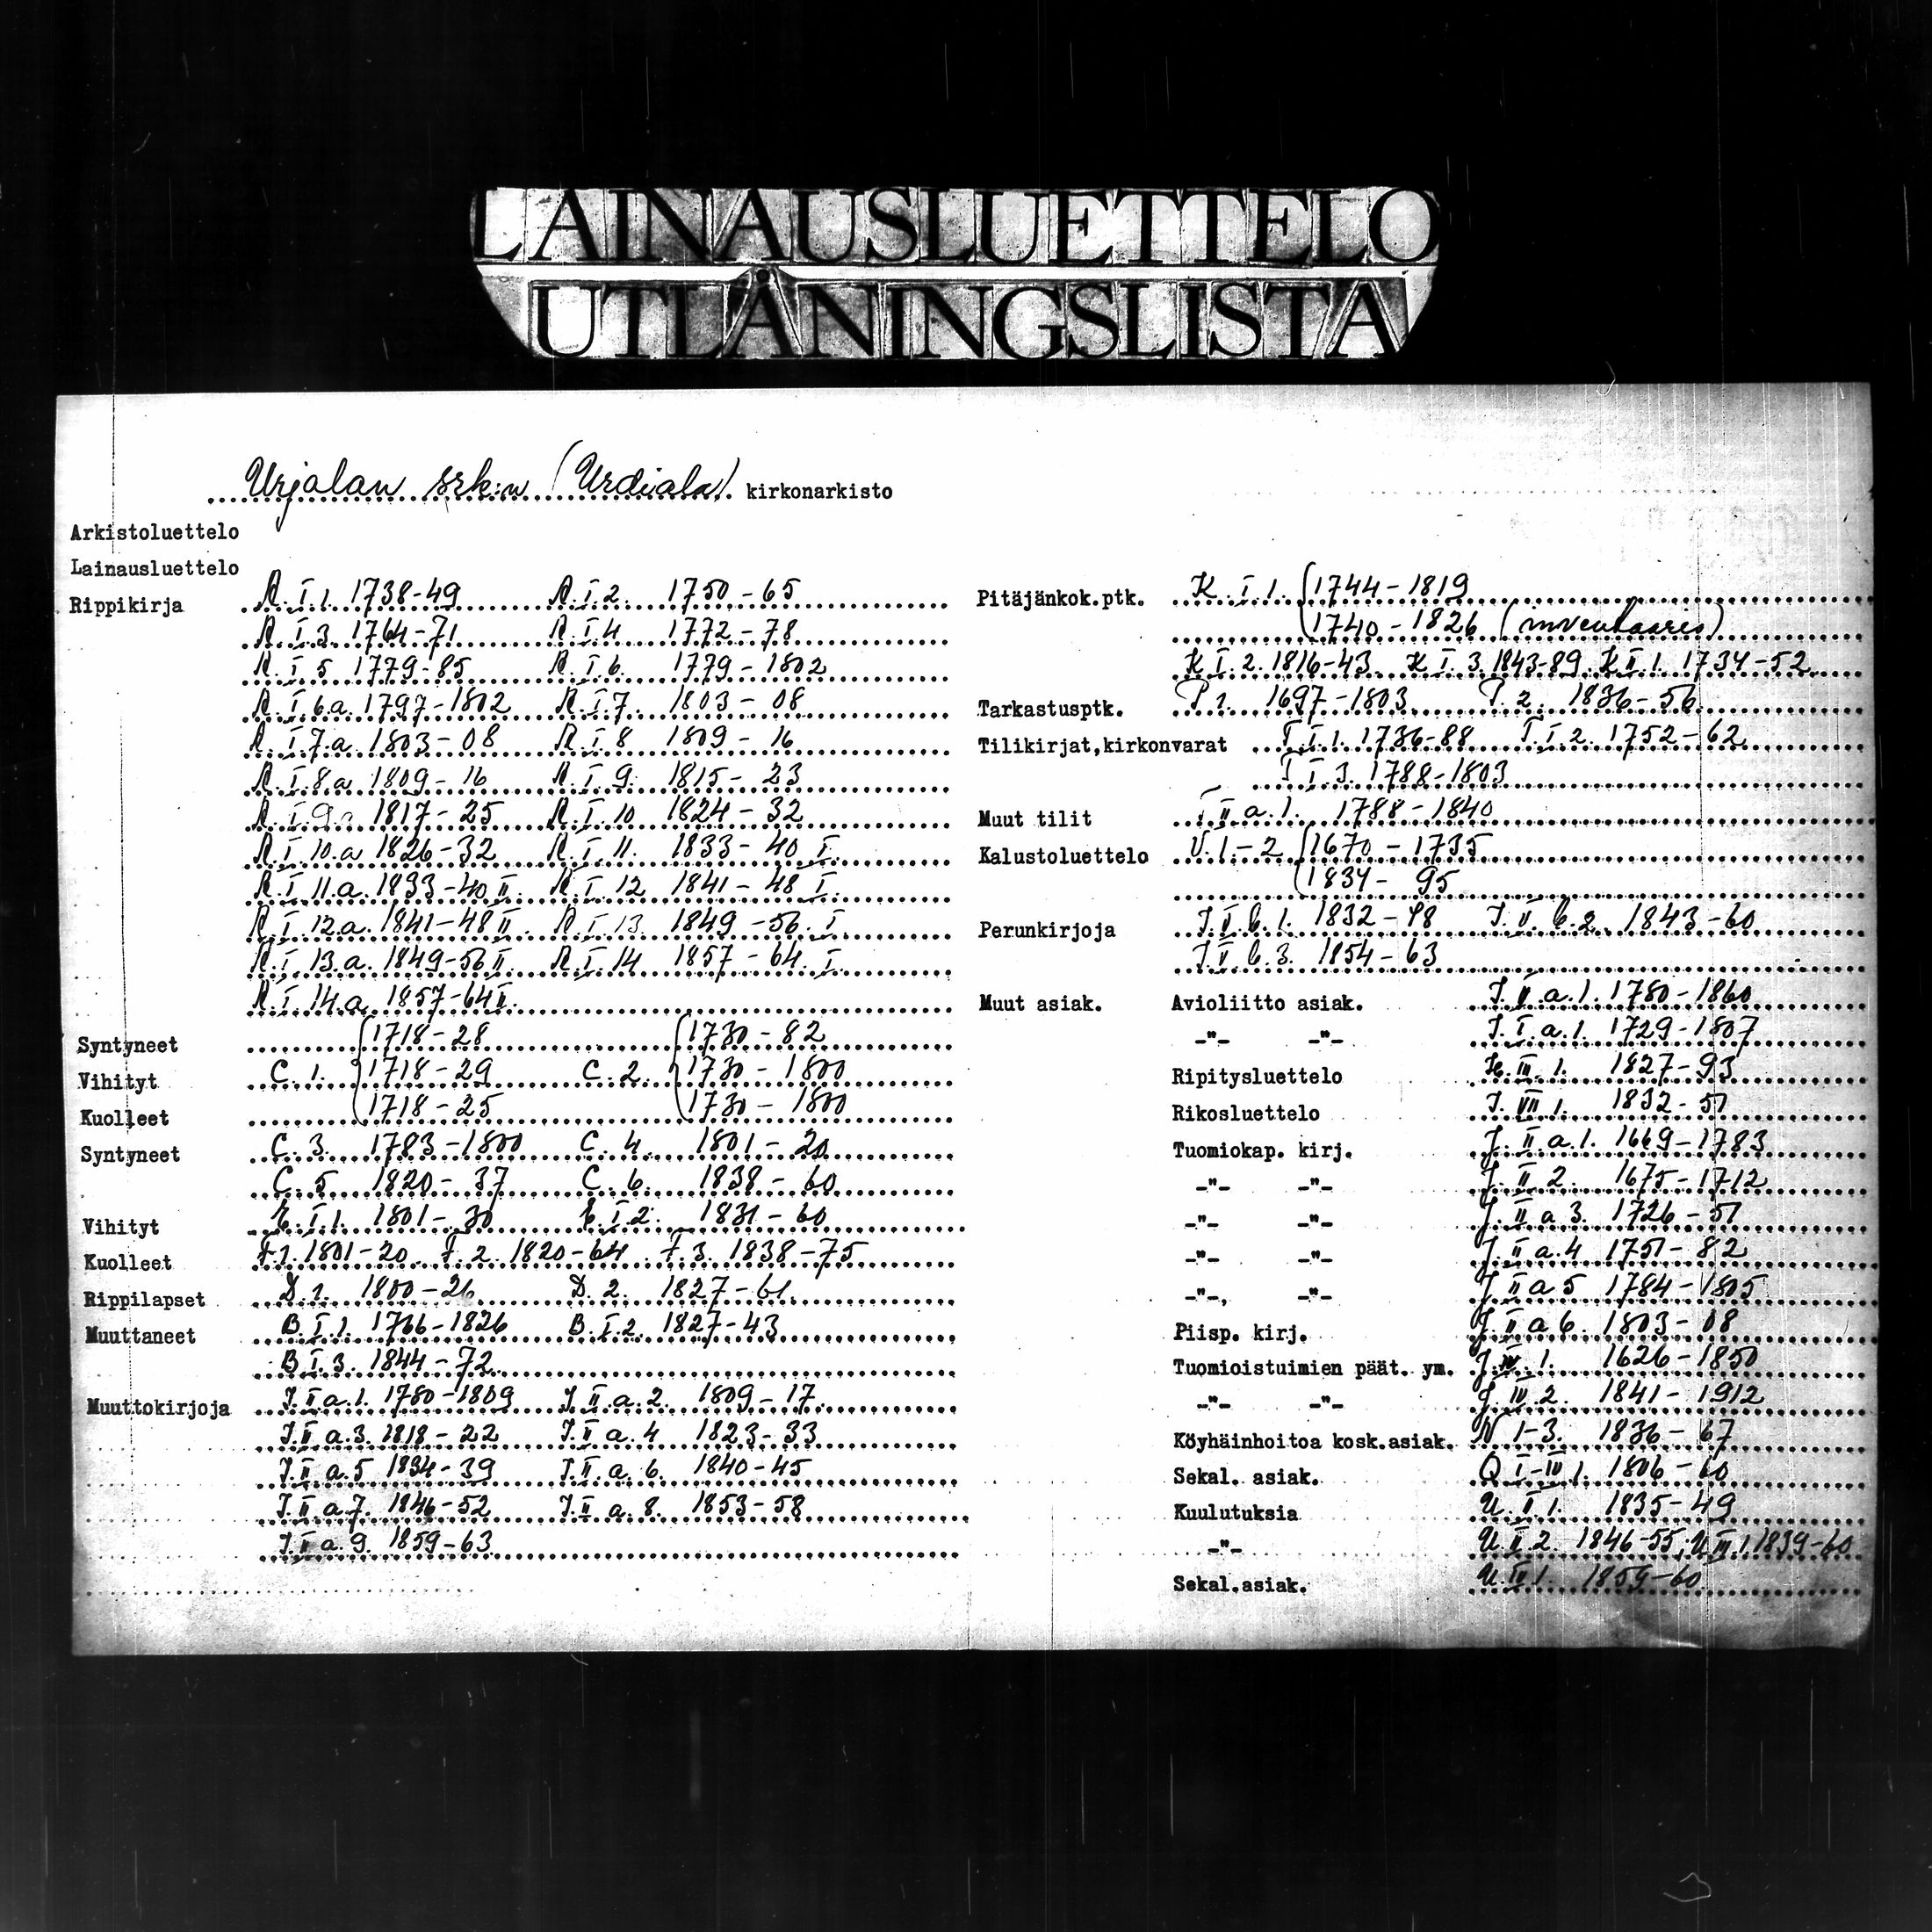 LAINAUSLUETTELO
UTLÅNINGSLISTA
Urjalan srk:n (Urdiala) kirkonarkisto
Arkistoluettelo
Lainausluettelo
Rippikirja A.I.1. 1738-49 A.I.2. 1750-65
A.I.3. 1764-71 A.I.4 1772-78
A.I.5 1779-85 A.I.6. 1779-1802
A.I.6.a. 1797-1802 A.I.7. 1803-08
A.I.7.a. 1803-08 A.I.8 1809-16
A.I.8.a 1809-16 A.I.9. 1815-23
A.I.9.a 1817-25 A.I.10 1824-32
A.I.10.a 1826-32 A.I.11. 1833-40 I.
A.I.11.a. 1833-40 II. A.I.12 1841-48 I.
A.I.12.a. 1841-48 II. A.I.13. 1849-56. I.
A.I.13.a. 1849-56 II. A.I.14 1857-64. I.
A.I.14.a. 1857-64 II.
Syntyneet 1718-28 1730-82
Vihityt C.1. 1718-29 C.2. 1730-1800
Kuolleet 1718-25 1730-1800
Syntyneet C.3. 1783-1800 C.4. 1801-20
C.5 1820-37 C.6. 1838-60
Vihityt E.I.1. 1801-30 E.I.2. 1831-60
Kuolleet F.1. 1801-20 F.2. 1820-64 F.3. 1838-75
Rippilapset D.1. 1800-26 D.2. 1827-61.
Muuttaneet B.I.1. 1766-1826 B.I.2. 1827-43
B.I.3. 1844-72
Muuttokirjoja J.II.a.1. 1780-1809 J.II.a.2. 1809-17.
J.II.a.3. 1818-22 J.II.a.4 1823-33
J.II.a.5 1834-39 J.II.a.6. 1840-45
J.II.a.7. 1846-52 J.II.a.8. 1853-58
J.II.a.9. 1859-63
Pitäjänkok.ptk. K.I.1. 1744-1819
1740-1826 (inventaario)
K I.2. 1816-43. K I.3. 1843-89. K II.1. 1734-52
Tarkastusptk. P 1. 1697-1803 P.2. 1836-56
Tilikirjat,kirkonvarat T.I.1. 1736-88 T.I.2. 1752-62
T I.3. 1788-1803
Muut tilit T II a.1. 1788-1840
Kalustoluettelo U.1.-2 1670-1735
1834-95
Perunkirjoja J.V.b.1. 1832-48 J.V.b.2. 1843-60
J.V.b.3. 1854-63
Muut asiak. Avioliitto asiak. J.V.a.1. 1780-1860
-"- -"- J.I.a.1. 1729-1807
Ripitysluettelo H.III.1. 1827-93
Rikosluettelo J.VII 1. 1832-51
Tuomiokap. kirj. J.II a.1. 1669-1783
-"- -"- J.II 2. 1675-1712
-"- -"- J.II a 3. 1726-51
-"- -"- J.II a.4 1751-82
-"-, -"- J II a 5 1784-1805
Piisp. kirj. J.II a 6. 1803-08
Tuomioistuimien päät. ym. J.IV.1. 1626-1850
-"- -"- J.IV.2. 1841-1912
Köyhäinhoitoa kosk.asiak. N 1-3. 1836-67
Sekal. asiak. Q I-IV 1. 1806-60
Kuulutuksia U.II 1. 1835-49
-"- U.II.2. 1846-55, U.III.1. 1839-60
Sekal.asiak. U.IV 1. 1859-60